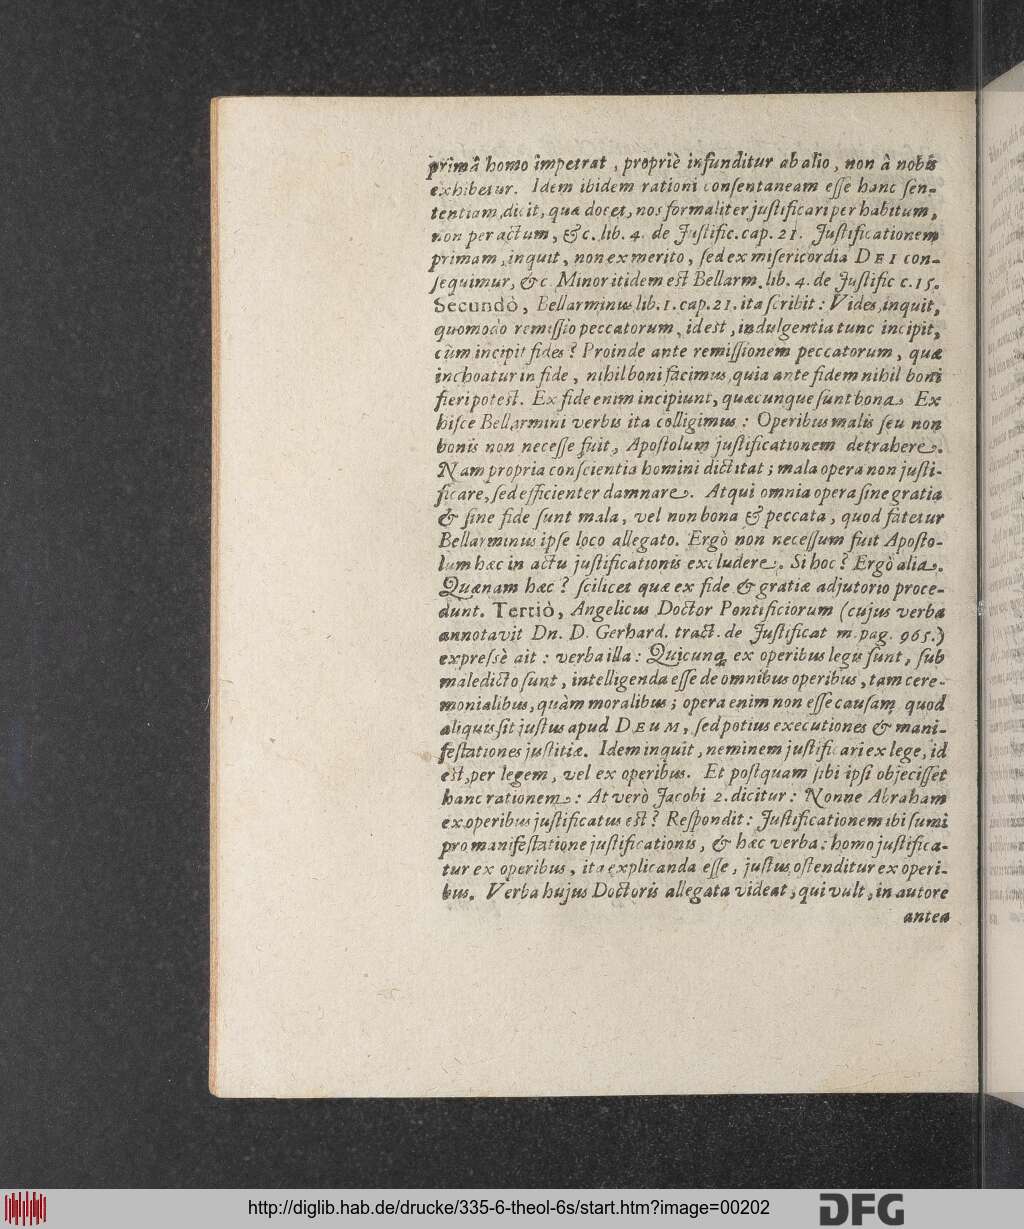 primâ homo impetrat, propriè infunditur ab alio, non à nobis
exhibetur. Idem ibidem rationi consentaneam esse hanc sen-
tentiam, dicit, quæ docet, nos formaliter justificari per habitum,
non per actum, &c. lib. 4. de Justific. cap. 21. Justificationem
primam, inquit, non ex merito, sed ex misericordia DEI con-
sequimur, &c. Minor itidem est Bellarm. lib. 4. de Justific c. 15.
Secundò, Bellarminus lib. 1. cap. 21. ita scribit: Vides, inquit,
quomodo remissio peccatorum, id est, indulgentia tunc incipit,
cùm incipit fides? Proinde ante remissionem peccatorum, quæ
inchoatur in fide, nihil boni facimus, quia ante fidem nihil boni
fieri potest. Ex fide enim incipiunt, quæcunque sunt bona. Ex
hisce Bellarmini verbis ita colligimus: Operibus malis seu non
bonis non necesse fuit, Apostolum justificationem detrahere.
Nam propria conscientia homini dictitat; mala opera non justi-
ficare, sed efficienter damnare. Atqui omnia opera sine gratia
& sine fide sunt mala, vel non bona & peccata, quod fatetur
Bellarminus ipse loco allegato. Ergò non necessum fuit Aposto-
lum hæc in actu justificationis excludere. Si hoc? Ergò alia.
Quænam hæc? scilicet quæ ex fide & gratiæ adjutorio proce-
dunt. Tertiò, Angelicus Doctor Pontificiorum (cujus verba
annotavit Dn. D. Gerhard. tract. de Justificat m. pag. 965.)
expressè ait: verba illa: Quicunq; ex operibus legis sunt, sub
maledicto sunt, intelligenda esse de omnibus operibus, tam cere-
monialibus, quàm moralibus; opera enim non esse causam quod
aliquis sit justus apud DEUM, sed potius executiones & mani-
festationes justitiæ. Idem inquit, neminem justificari ex lege, id
est, per legem, vel ex operibus. Et postquam sibi ipsi objecisset
hanc rationem: At verò Jacobi 2. dicitur: Nonne Abraham
ex operibus justificatus est? Respondit: Justificationem ibi sumi
pro manifestatione justificationis, & hæc verba: homo justifica-
tur ex operibus, ita explicanda esse, justus ostenditur ex operi-
bus. Verba hujus Doctoris allegata videat, qui vult, in autore
antea
http://diglib.hab.de/drucke/335-6-theol-6s/start.htm?image=00202
DFG